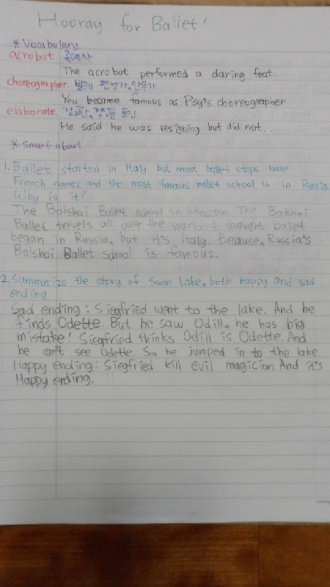 Hooray for Ballet!
* Vocabulary
acrobat 곡예사
The acrobat performed a daring feat.
choreographer 발레 편성가, 안무가
You became famous as Psy's choreographer
elaborate
He said he was resigning but did not.
* Smart about
1. Ballet started in Italy but most ballet steps have
French names and the most famous ballet school is in Russia.
Why is it?
The Bolshoi Ballet school in Moscow The Bolshoi
Ballet travels all over the world I thought ballet
began in Russia, but it's Italy. Because, Russia's
Bolshoi Ballet School is famous.
2. Summarize the story of Swan Lake, both happy and sad
ending
Sad ending: Siegfried went to the lake. And he
finds Odette. But he saw Odill. he has big
mistake! Siegfried thinks Odill is Odette. And
he can't see Odette So he jumped in to the lake
Happy ending: Siegfried kill evil magician And it's
Happy ending.